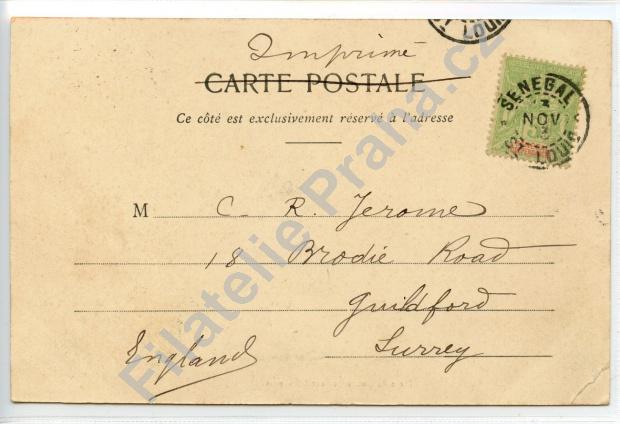 ST LOUIS
Imprimé
CARTE POSTALE
Ce côté est exclusivement réservé à l'adresse
SENEGAL
3
NOV
ST LOUIS
M C. R. Jerome
18 Brodie Road
Guildford
Surrey
England
Filatelie Praha.cz